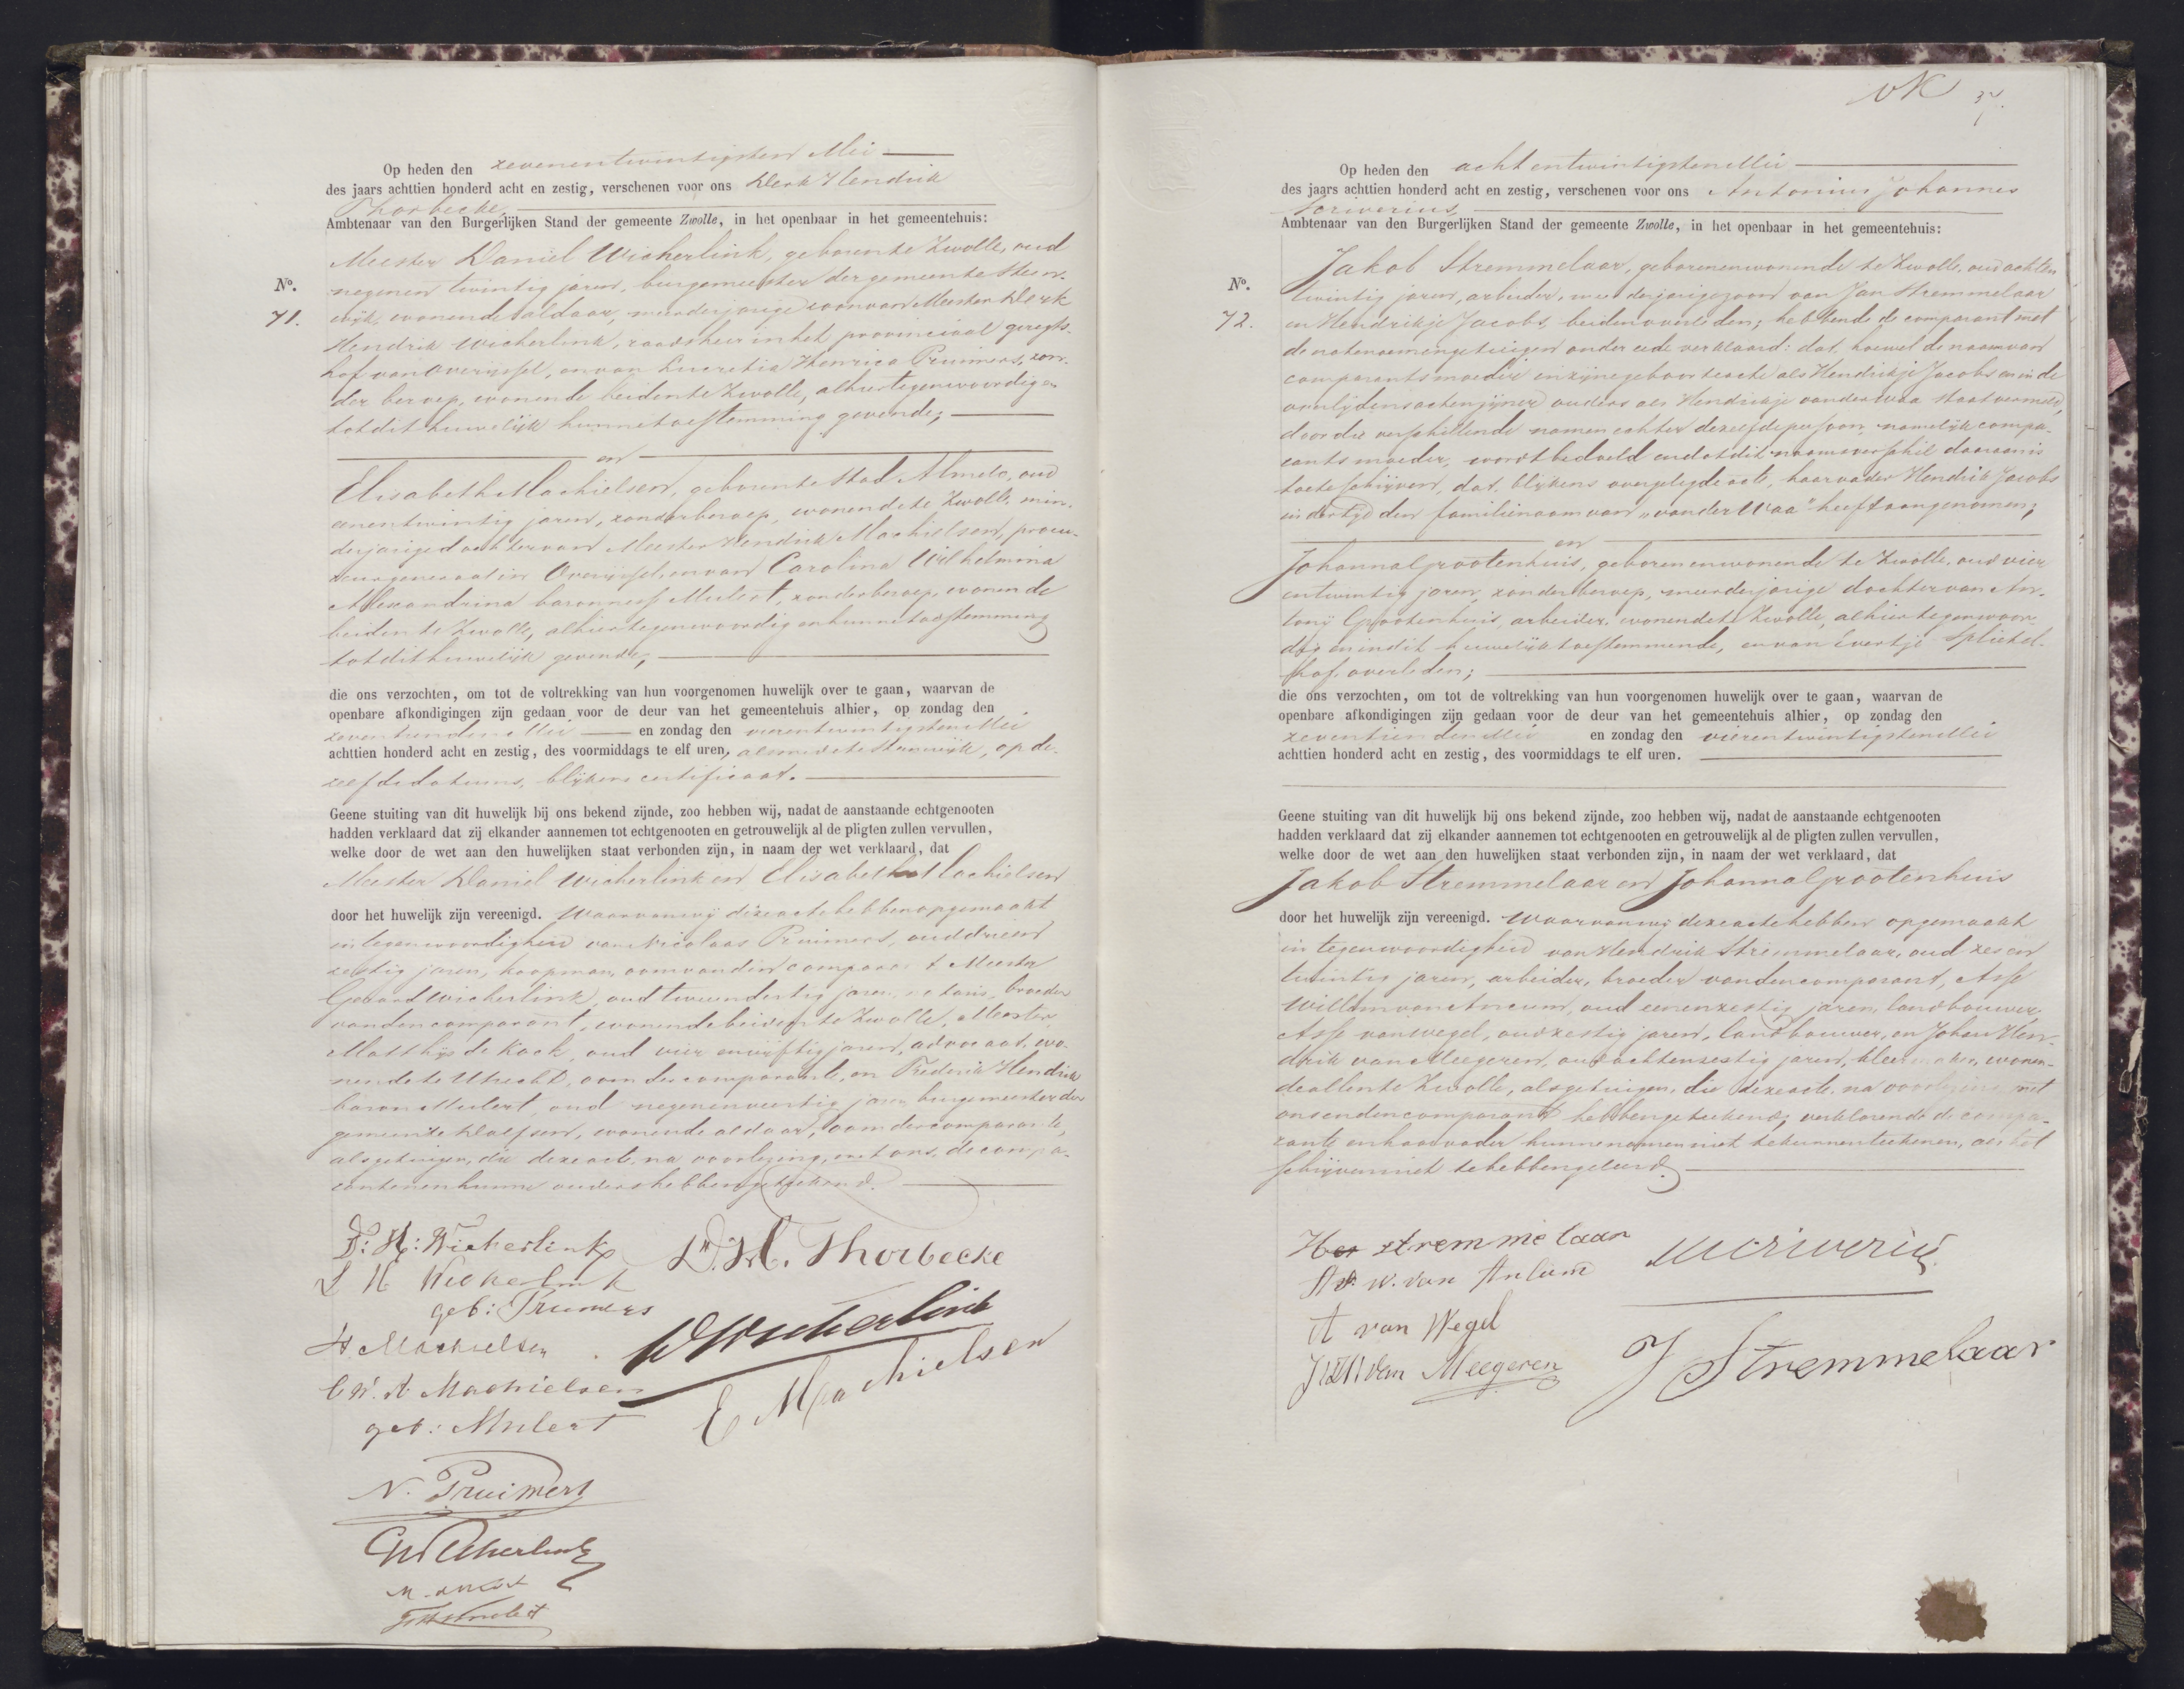 Op heden den zevenentwintigsten Mei
des jaars achttien honderd acht en zestig, verschenen voor ons Derk Hendrik
Thorbecke,
Ambtenaar van den Burgerlijken Stand der gemeente Zwolle, in het openbaar in het gemeentehuis:
No.
71.
Meester Daniel Wicherlink, geboren te Zwolle, oud
negenen twintig jaren, burgemeester der gemeente Steen-
wijk, wonende aldaar, meerderjarige zoon van Meester Derk
Hendrik Wicherlink, raadsheer in het provinciaal geregts-
hof van Overijssel, en van Lucretia Henrica Pruimers, zon-
der beroep, wonende beiden te Zwolle, alhier tegenwoordig en
tot dit huwelijk hunne toestemming gevende,
en
Elisabeth Machielsen, geboren te Stad Almelo, oud
eenentwintig jaren, zonder beroep, wonende te Zwolle, min-
derjarige dochter van Meester Hendrik Machielsen, procu-
reur generaal in Overijssel, en van Carolina Wilhelmina
Alexandrina baronness Mulert, zonder beroep, wonende
beiden te Zwolle, alhier tegenwoordig en hunne toestemming
tot dit huwelijk gevende,
die ons verzochten, om tot de voltrekking van hun voorgenomen huwelijk over te gaan, waarvan de
openbare afkondigingen zijn gedaan voor de deur van het gemeentehuis alhier, op zondag den
zeventienden Mei en zondag den vierentwintigsten Mei
achttien honderd acht en zestig, des voormiddags te elf uren, alsmede te Steenwijk, op de-
zelfde datums, blijkens certificaat.
Geene stuiting van dit huwelijk bij ons bekend zijnde, zoo hebben wij, nadat de aanstaande echtgenooten
hadden verklaard dat zij elkander aannemen tot echtgenooten en getrouwelijk al de pligten zullen vervullen,
welke door de wet aan den huwelijken staat verbonden zijn, in naam der wet verklaard, dat
Meester Daniel Wicherlink en Elisabeth Machielsen
door het huwelijk zijn vereenigd. Waarvan wij deze acte hebben opgemaakt
in tegenwoordigheid van Nicolaas Pruimers, oud drieen
zestig jaren, koopman, oom van den comparant, Meester
Gerard Wicherlink, oud tweeendertig jaren, notaris, broeder
van den comparant, wonende beiden te Zwolle, Meester
Matthijs de Kock, oud vier en vijftig jaren, advocaat, wo-
nende te Utrecht, oom der comparante, en Frederik Hendrik
baron Mulert, oud negenenveertig jaren, burgemeester der
gemeente Dalfsen, wonende aldaar, oom der comparante,
als getuigen, die deze acte, na voorlezing, met ons, de compa-
ranten en hunne ouders hebben geteekend.
D: H: Wicherlink
L H Wicherlink
geb: Pruimers
H Machielsen
C. W. A. Machielsen
geb: Mulert
N. Pruimers
G Wicherlink
M. de Kock
F H Mulert
D. H. Thorbecke
D Wicherlink
E Machielsen
37
Op heden den acht entwintigsten Mei
des jaars achttien honderd acht en zestig, verschenen voor ons Antonius Johannes
Vorwerius
Ambtenaar van den Burgerlijken Stand der gemeente Zwolle, in het openbaar in het gemeentehuis:
No.
72.
Jakob Stremmelaar, geboren en wonende te Zwolle, oud achten
twintig jaren, arbeider, meerderjarige zoon van Jan Stremmelaar
en Hendrikje Jacobs, beiden overleden; hebbende de comparant met
de natenoemen getuigen onder eede verklaard: dat, hoewel de naam van
comparants moeder in zijne geboorteacte als Hendrikje Jacobs en in de
overlijdensacten zijner ouders als Hendrikje van der Waa staat vermeld,
door die verschillende namen echter dezelfde persoon, namelijk compa-
rants moeder, wordt bedoeld en dat dit naamsverschil daaraan is
toeteschrijven, dat, blijkens overgelegde acte, haar vader Hendrik Jacobs
in der tijd den familienaam van "van der Waa" heeft aangenomen;
en
Johanna Grootenhuis, geboren en wonende te Zwolle, oud vier
entwintig jaren, zonder beroep, meerderjarige dochter van An-
tonij Grootenhuis, arbeider, wonende te Zwolle, alhier tegenwoor-
dig en in dit huwelijk toestemmende, en van Evertje Splietel-
hof, overleden;
die ons verzochten, om tot de voltrekking van hun voorgenomen huwelijk over te gaan, waarvan de
openbare afkondigingen zijn gedaan voor de deur van het gemeentehuis alhier, op zondag den
zeventienden Mei en zondag den vierentwintigsten Mei
achttien honderd acht en zestig, des voormiddags te elf uren.
Geene stuiting van dit huwelijk bij ons bekend zijnde, zoo hebben wij, nadat de aanstaande echtgenooten
hadden verklaard dat zij elkander aannemen tot echtgenooten en getrouwelijk al de pligten zullen vervullen,
welke door de wet aan den huwelijken staat verbonden zijn, in naam der wet verklaard, dat
Jakob Stremmelaar en Johanna Grootenhuis
door het huwelijk zijn vereenigd. Waarvan wij deze acte hebben opgemaakt
in tegenwoordigheid van Hendrik Stremmelaar, oud zes en
twintig jaren, arbeider, broeder van den comparant, Asse
Willem van Ankum, oud eenenzestig jaren, landbouwer,
Asse van Wegel, oud zestig jaren, landbouwer, en Johan Hen-
drik van Meegeren, oud achtenzestig jaren, kleermaker, wonen-
de allen te Zwolle, als getuigen, die deze acte, na voorlezing, met
ons en den comparant hebben geteekend, verklarende de compa-
rante en haar vader hunne namen niet te kunnen teekenen, als het
schrijven niet te hebben geleerd.
H stremmelaar
A. W. van Ankum
A van Wegel
J H van Meegeren
J Stremmelaar